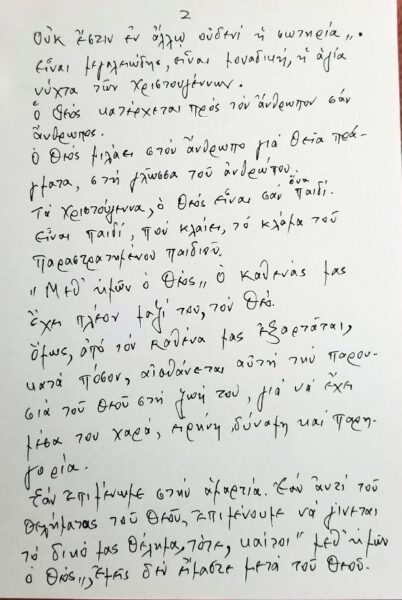 2
Οὐκ ἔστιν ἐν ἄλλῳ οὐδενί ἡ σωτηρία".
εἶναι μεγαλειώδης, εἶναι μοναδική, ἡ ἁγία
νύχτα τῶν Χριστουγέννων.
ὁ Θεός κατέρχεται πρός τόν ἄνθρωπον σάν
ἄνθρωπος.
Ὁ Θεός μιλάει στόν ἄνθρωπο γιά θεῖα πρά-
γματα, στή γλῶσσα τοῦ ἀνθρώπου.
Τά Χριστούγεννα, ὁ Θεός εἶναι σάν ἕνα παιδί.
εἶναι παιδί, πού κλαίει, τό κλάμα τοῦ
παραστρατημένου παιδιοῦ.
"Μεθ' ἡμῶν ὁ Θεός" ὁ καθένας μας
ἔχει πλέον μαζί του, τόν Θεό.
ὅμως, ἀπό τόν καθένα μας ἐξαρτᾶται,
κατά πόσον, αἰσθάνεται αὐτή τήν παρου-
σιά τοῦ Θεοῦ στή ζωή του, γιά νά ἔχει
μέσα του χαρά, εἰρήνη, δύναμη καί παρη-
γορία.
Ἐάν ἐπιμένωμε στήν ἁμαρτία. Ἐάν ἀντί τοῦ
θελήματος τοῦ Θεοῦ, ἐπιμένουμε νά γίνεται
τό δικό μας θέλημα, τότε, καίτοι "μεθ' ἡμῶν
ὁ Θεός", ἐμεῖς δέν εἴμαστε μετά τοῦ Θεοῦ.